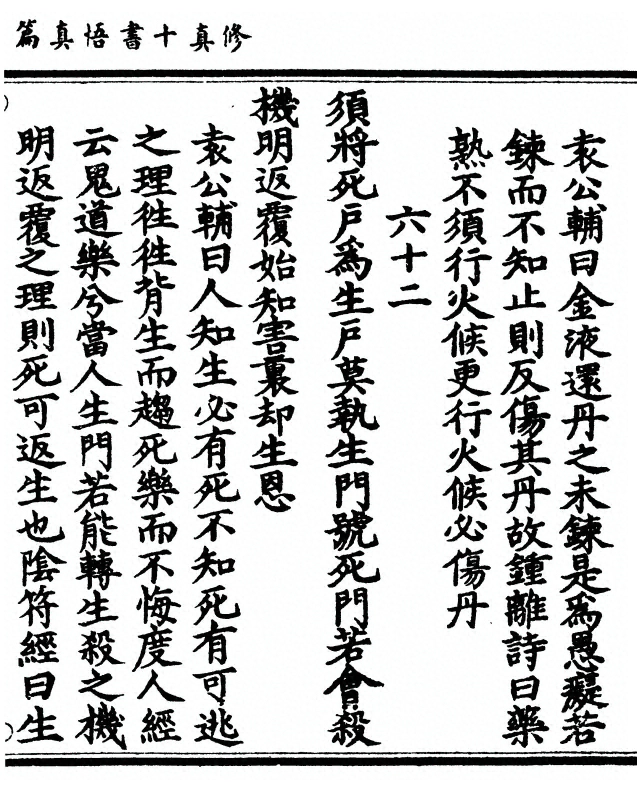 修真十書悟真篇
袁公輔曰金液還丹之未鍊是爲愚癡若
鍊而不知止則反傷其丹故鍾離詩曰藥
熟不須行火候更行火候必傷丹
六十二
須將死戶爲生戶莫執生門號死門若會殺
機明返覆始知害裏却生恩
袁公輔曰人知生必有死不知死有可逃
之理徃徃背生而趨死樂而不悔度人經
云鬼道樂兮當人生門若能轉生殺之機
明返覆之理則死可返生也陰符經曰生